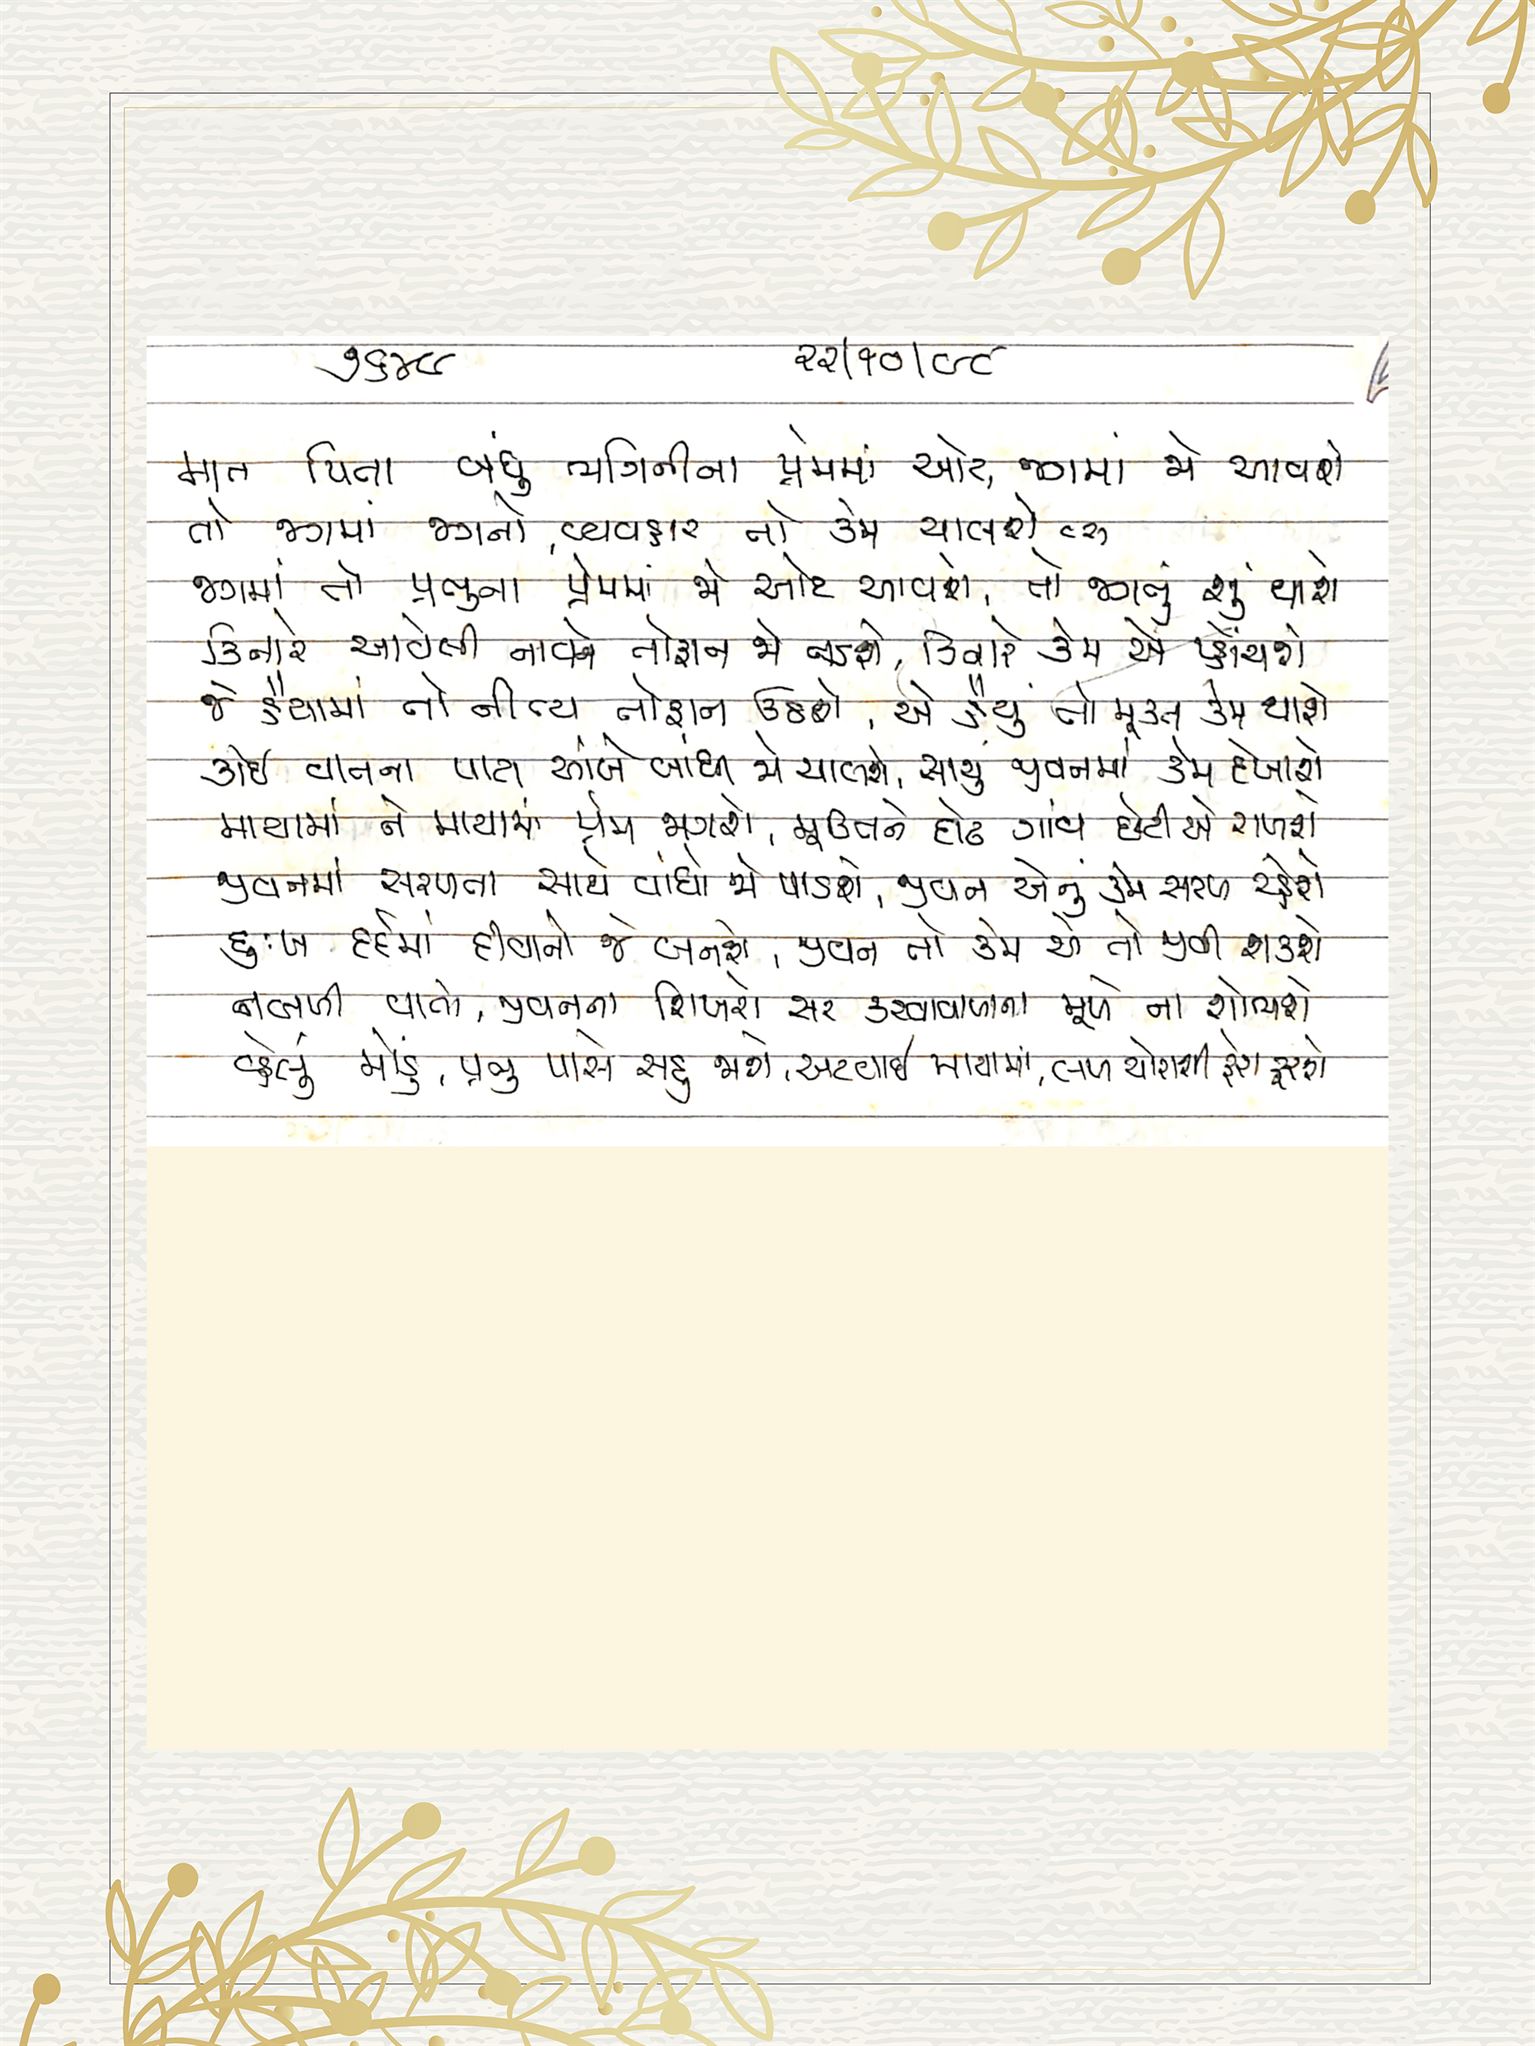 ૭૬૪૮ ૨૨/૧૦/૯૮
માત પિતા બંધુ ભગિનીના પ્રેમમાં ઓટ, જગમાં જો આવશે
તો જગમાં જગનો, વ્યવહાર તો કેમ ચાલશે
જગમાં તો પ્રભુના પ્રેમમાં જો ઓટ આવશે, તો જગનું શું થાશે
કિનારે આવેલી નાવને તોફાન જો નડશે, કિનારે કેમ એ પ્હોંચશે
જે હૈયામાં તો નીત્ય તોફાન ઉઠશે, એ હૈયું તો મુક્ત કેમ થાશે
કોઈ વાતના પાટા આંખે બાંધી જો ચાલશે, સાચું જીવનમાં કેમ દેખાશે
માયામાં ને માયામાં પ્રેમ જાગશે, મુક્તિને દોઢ ગાંવ છેટી એ રાખશે
જીવનમાં સરળતા સાથે વાંધો જો પાડશે, જીવન એનું કેમ સરળ રહેશે
દુઃખ દર્દમાં દીવાનો જે બનશે, જીવન તો કેમ એ તો જીવી શકશે
નબળી વાતો, જીવનના શિખરો સર કરવાવાળાના મૂખે ના શોભશે
વ્હેલું મોડું, પ્રભુ પાસે સહુ જાશે, અટવાઈ માયામાં, લખ ચોરાશી ફેરા ફરશે